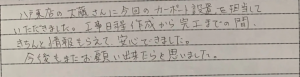 八戸店の工藤さんに今回のカーポート設置を担当して
いただきました。工事日程作成から完工までの間、
きちんと情報もらえて、安心できました。
今後もまたお願い出来たらと思いました。